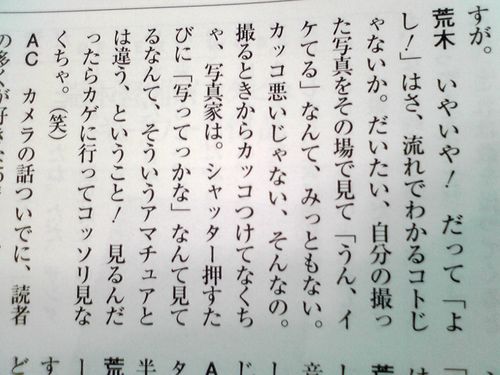 すが。
荒木　いやいや！　だって「よ
し！」はさ、流れでわかるコトじ
ゃないか。だいたい、自分の撮っ
た写真をその場で見て「うん、イ
ケてる」なんて、みっともない。
カッコ悪いじゃない、そんなの。
撮るときからカッコつけてなくち
ゃ、写真家は。シャッター押すた
びに「写ってっかな」なんて見て
るなんて、そういうアマチュアと
は違う、ということ！　見るんだ
ったらカゲに行ってコッソリ見な
くちゃ。（笑）
AC　カメラの話ついでに、読者